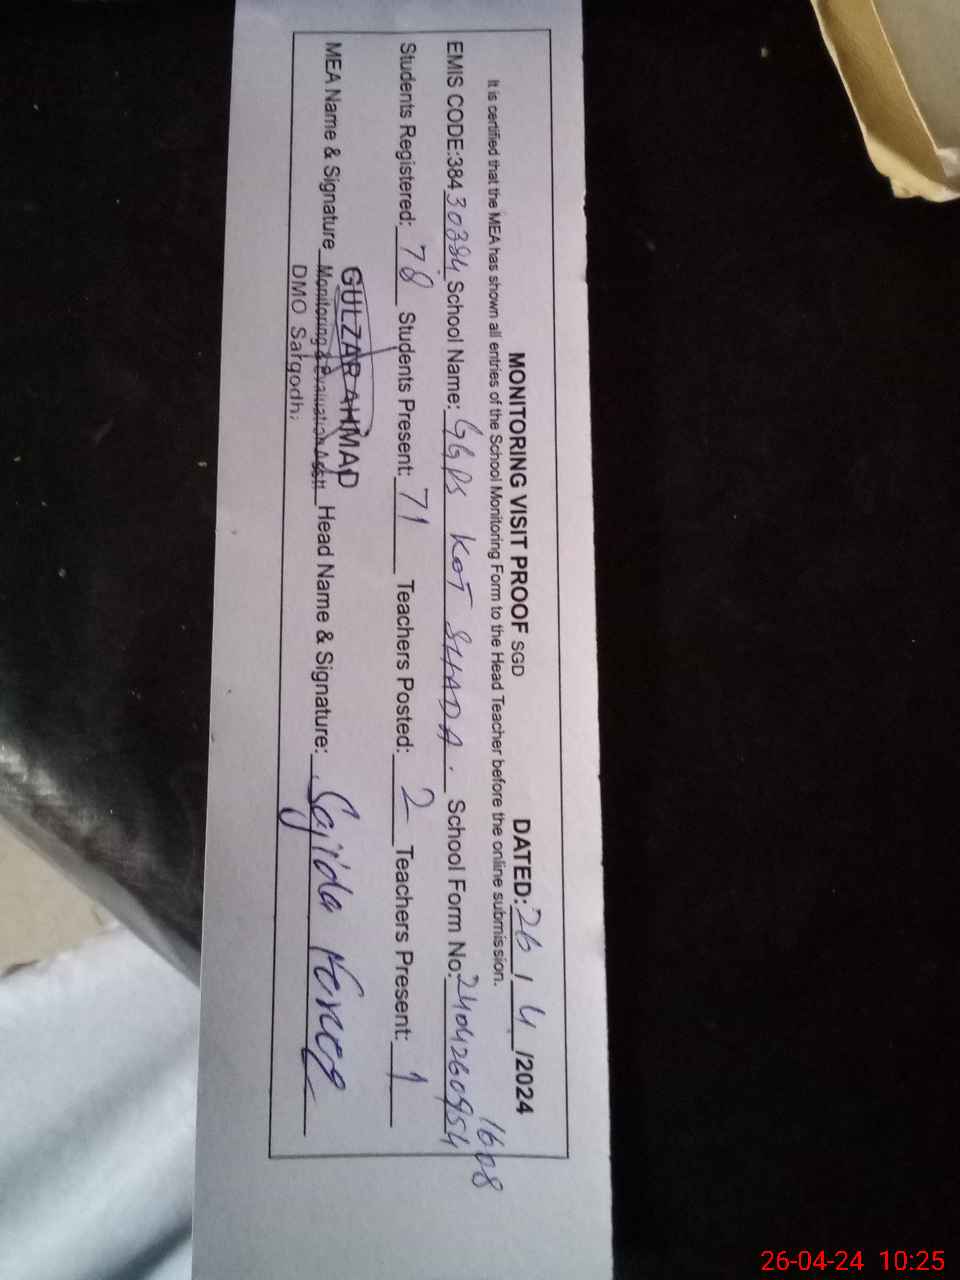 MONITORING VISIT PROOF SGD DATED: 26 / 4 /2024
It is certified that the MEA has shown all entries of the School Monitoring Form to the Head Teacher before the online submission.
1608
EMIS CODE:38430384 School Name: GGPS KOT SHADA. School Form No: 2404260954
Students Registered: 78 Students Present: 71 Teachers Posted: 2 Teachers Present: 1
GULZAR AHMAD
MEA Name & Signature Monitoring & Evaluation Asstt Head Name & Signature: Sajida
DMO Sargodh
26-04-24 10:25